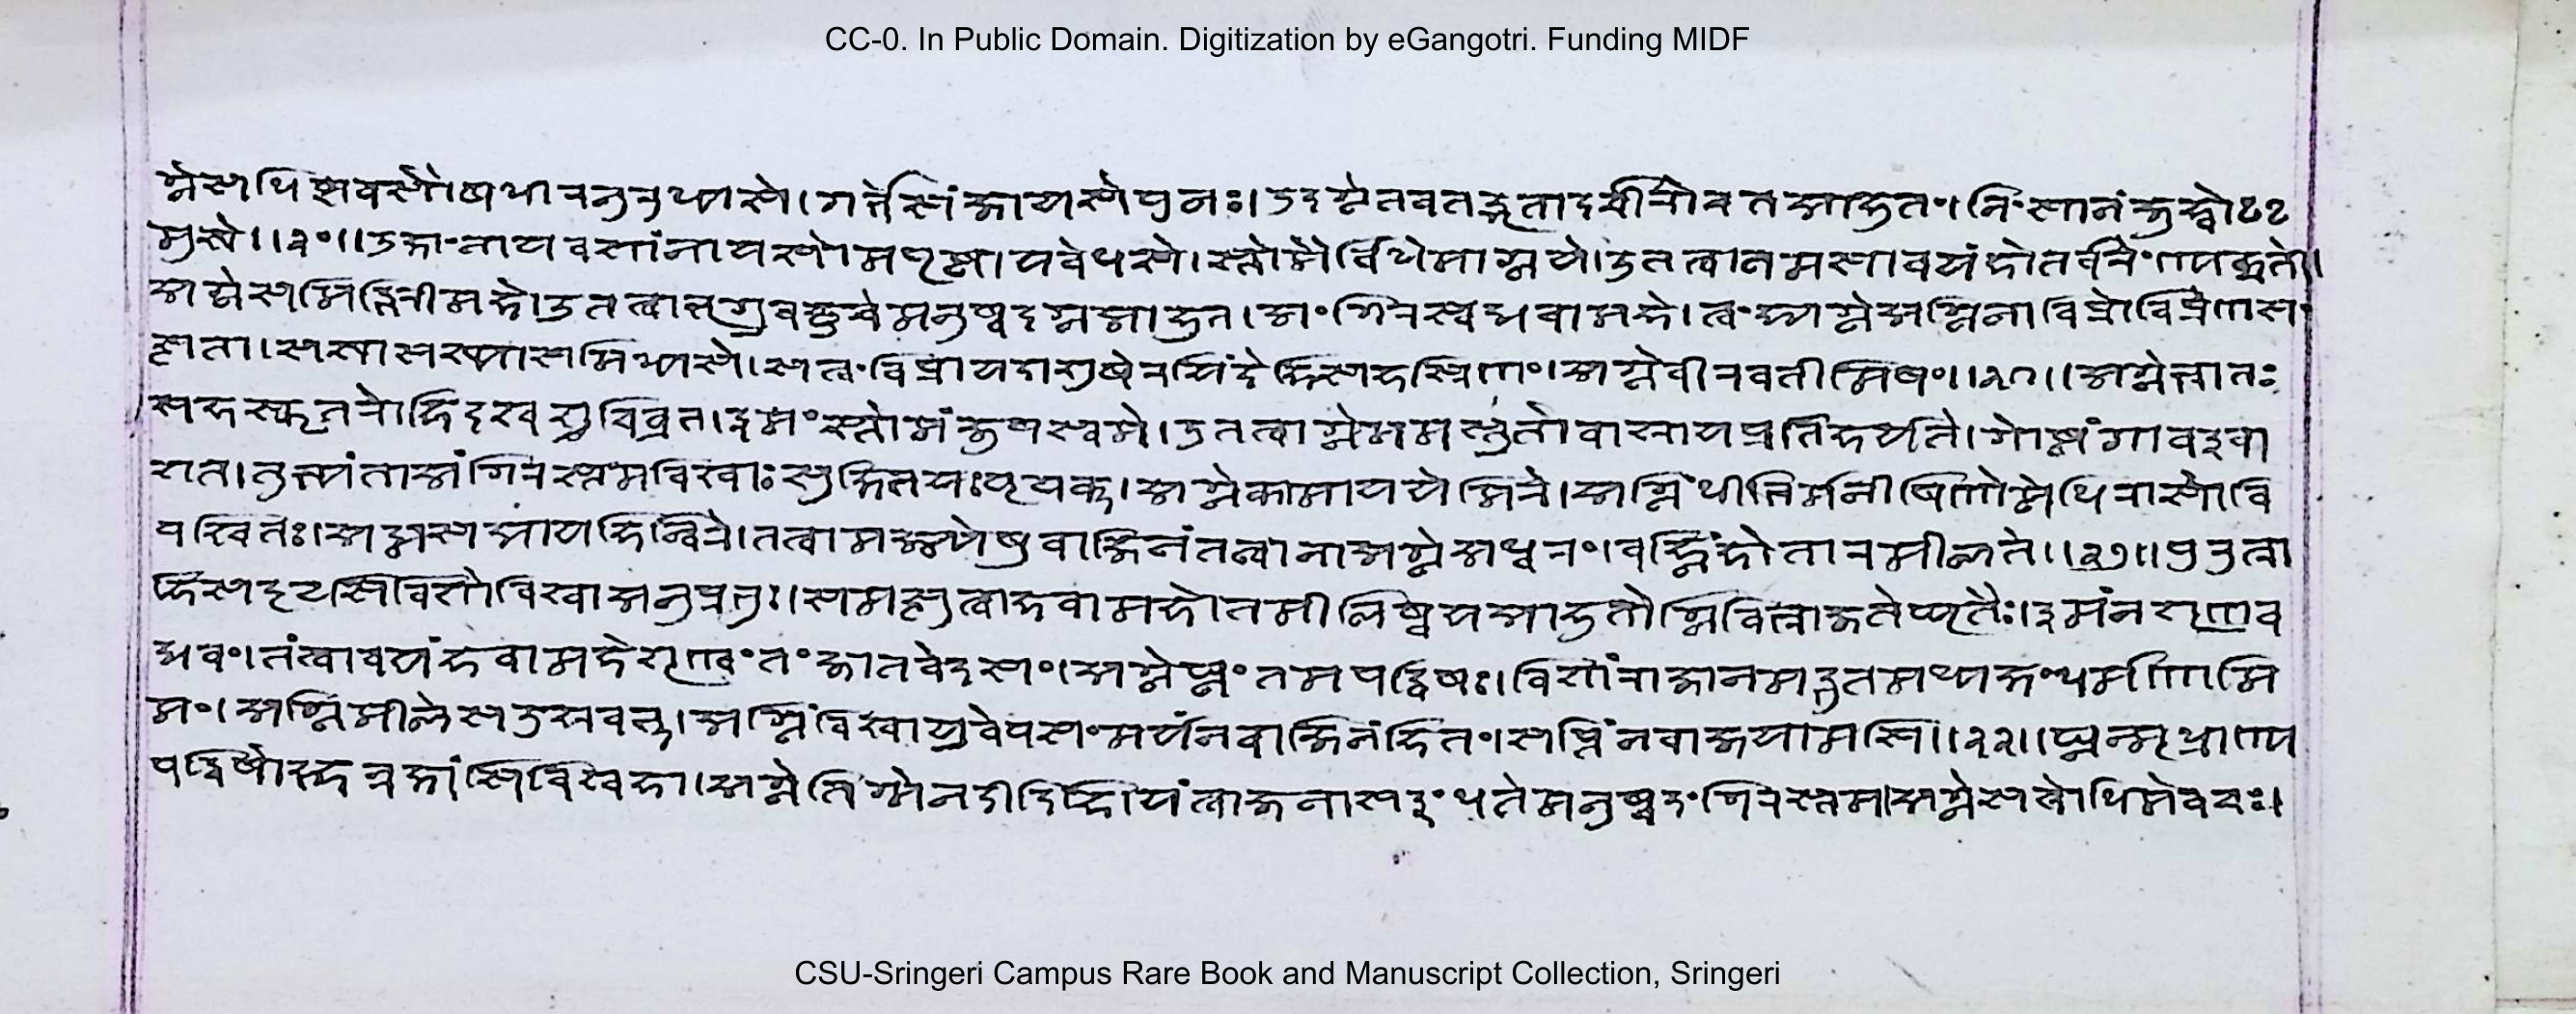 CC-0. In Public Domain. Digitization by eGangotri. Funding MIDF
ग्नेसधिष्टवसौषधीरनुरुध्यसे। गर्भेसंजायसेपुनः। उदग्नेतवतद्घृतादर्चीरोचतआहुतं। निंसानंजुह्वो
मुखे॥३०॥ उक्षान्नायवशांनायसोमपृष्ठायवेधसे। स्तोमैर्विधेमाग्नये। उतत्वानमसावयंहोतर्वरेण्यक्रतो।
अग्नेसमिद्भिरीमहे। उतत्वाभृगुवच्छुचेमनुष्वदग्नआहुत। अंगिरस्वद्धवामहे। त्वंह्यग्नेअग्निनाविप्रोविप्रेणसं
त्सता। सखासख्यासमिध्यसे। सत्वंविप्रायदाशुषेरयिंदेहिसहस्रिणं। अग्नेवीरवतीमिषं॥३१॥ अग्नेभ्रातः
सहस्कृतरोहिदश्वशुचिव्रत। इमंस्तोमंजुषस्वमे। उतत्वाग्नेममस्तुतोवाश्रायप्रतिहर्यते। गोष्ठंगावइवा
शत। तुभ्यंताअंगिरस्तमविश्वाःसुक्षितयःपृथक्। अग्नेकामाययेमिरे। अग्निंधीभिर्मनीषिणोमेधिरासोवि
पश्चितः। अद्मसद्यायहिन्विरे। तंत्वामज्मेषुवाजिनंतन्वानाअग्नेअध्वरं। वह्निंहोतारमीळते॥३२॥ पुरुत्रा
हिसदृङ्ङसिविशोविश्वाअनुप्रभुः। समत्सुत्वाहवामहे। तमीळिष्वयआहुतोग्निर्विभ्राजतेघृतैः। इमंनःशृणव
द्धवं। तंत्वावयंहवामहेशृण्वंतंजातवेदसं। अग्नेघ्नंतमपद्विषः। विशांराजानमद्भुतमध्यक्षंधर्मणामि
मं। अग्निमीळेसउश्रवत्। अग्निंविश्वायुवेपसंमर्यंनवाजिनंहितं। सप्तिंनवाजयामसि॥३३॥ घ्नन्मृध्राण्य
पद्विषोदहन्रक्षांसिविश्वहा। अग्नेतिग्मेनदीदिहि। यंत्वाजनासइंधतेमनुष्वदंगिरस्तम। अग्नेसबोधिमेवचः।
CSU-Sringeri Campus Rare Book and Manuscript Collection, Sringeri